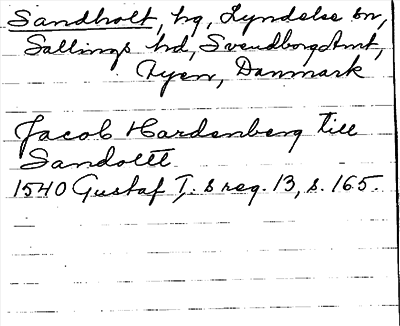 Sandholt, hg, Lyndelse sn,
Sallings hd, Svendborgs Amt,
Fyen, Danmark
Jacob Hardenberg till
Sandoltt
1540 Gustaf I:s reg. 13, s. 165.